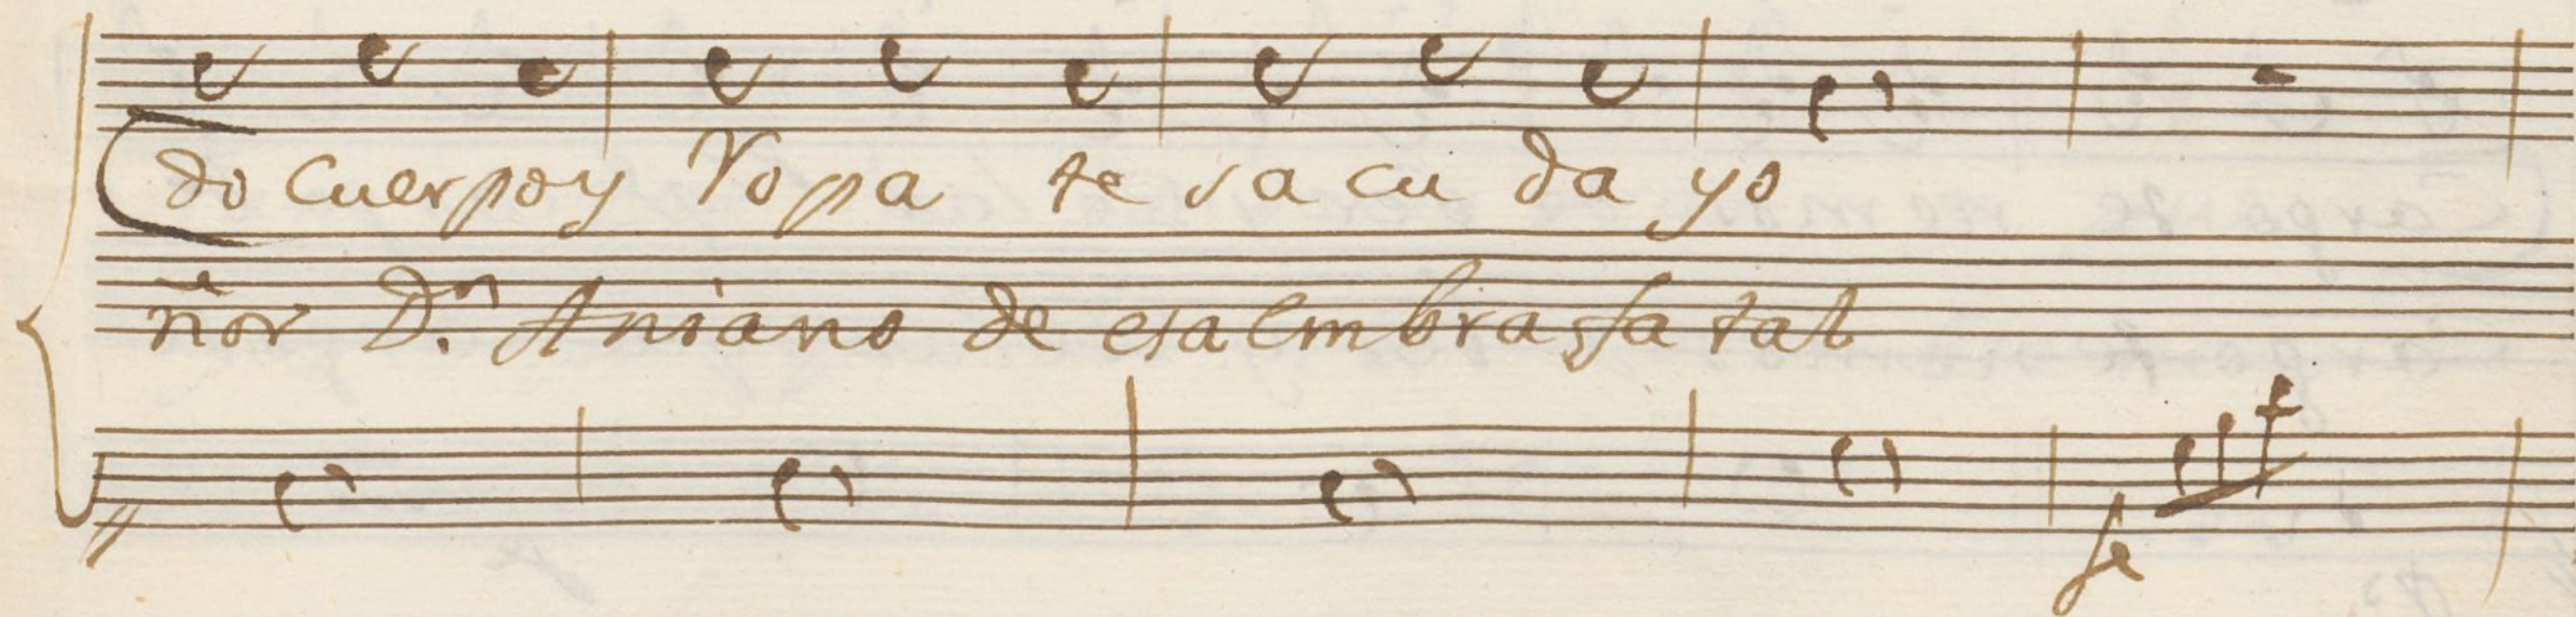 do cuerpo y Ropa te sacu da yo
ñor D.n Aniano de esa embra fatal
fe